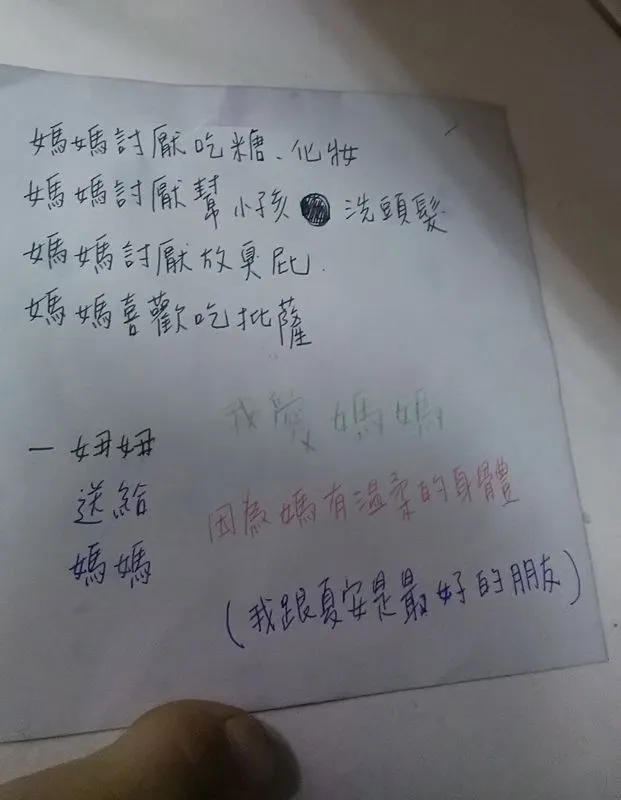 媽媽討厭吃糖、化妝
媽媽討厭幫小孩洗頭髮
媽媽討厭放臭屁.
媽媽喜歡吃批薩
我愛媽媽
一妞妞
送給
媽媽
因為媽有溫柔的身體
(我跟夏安是最好的朋友)